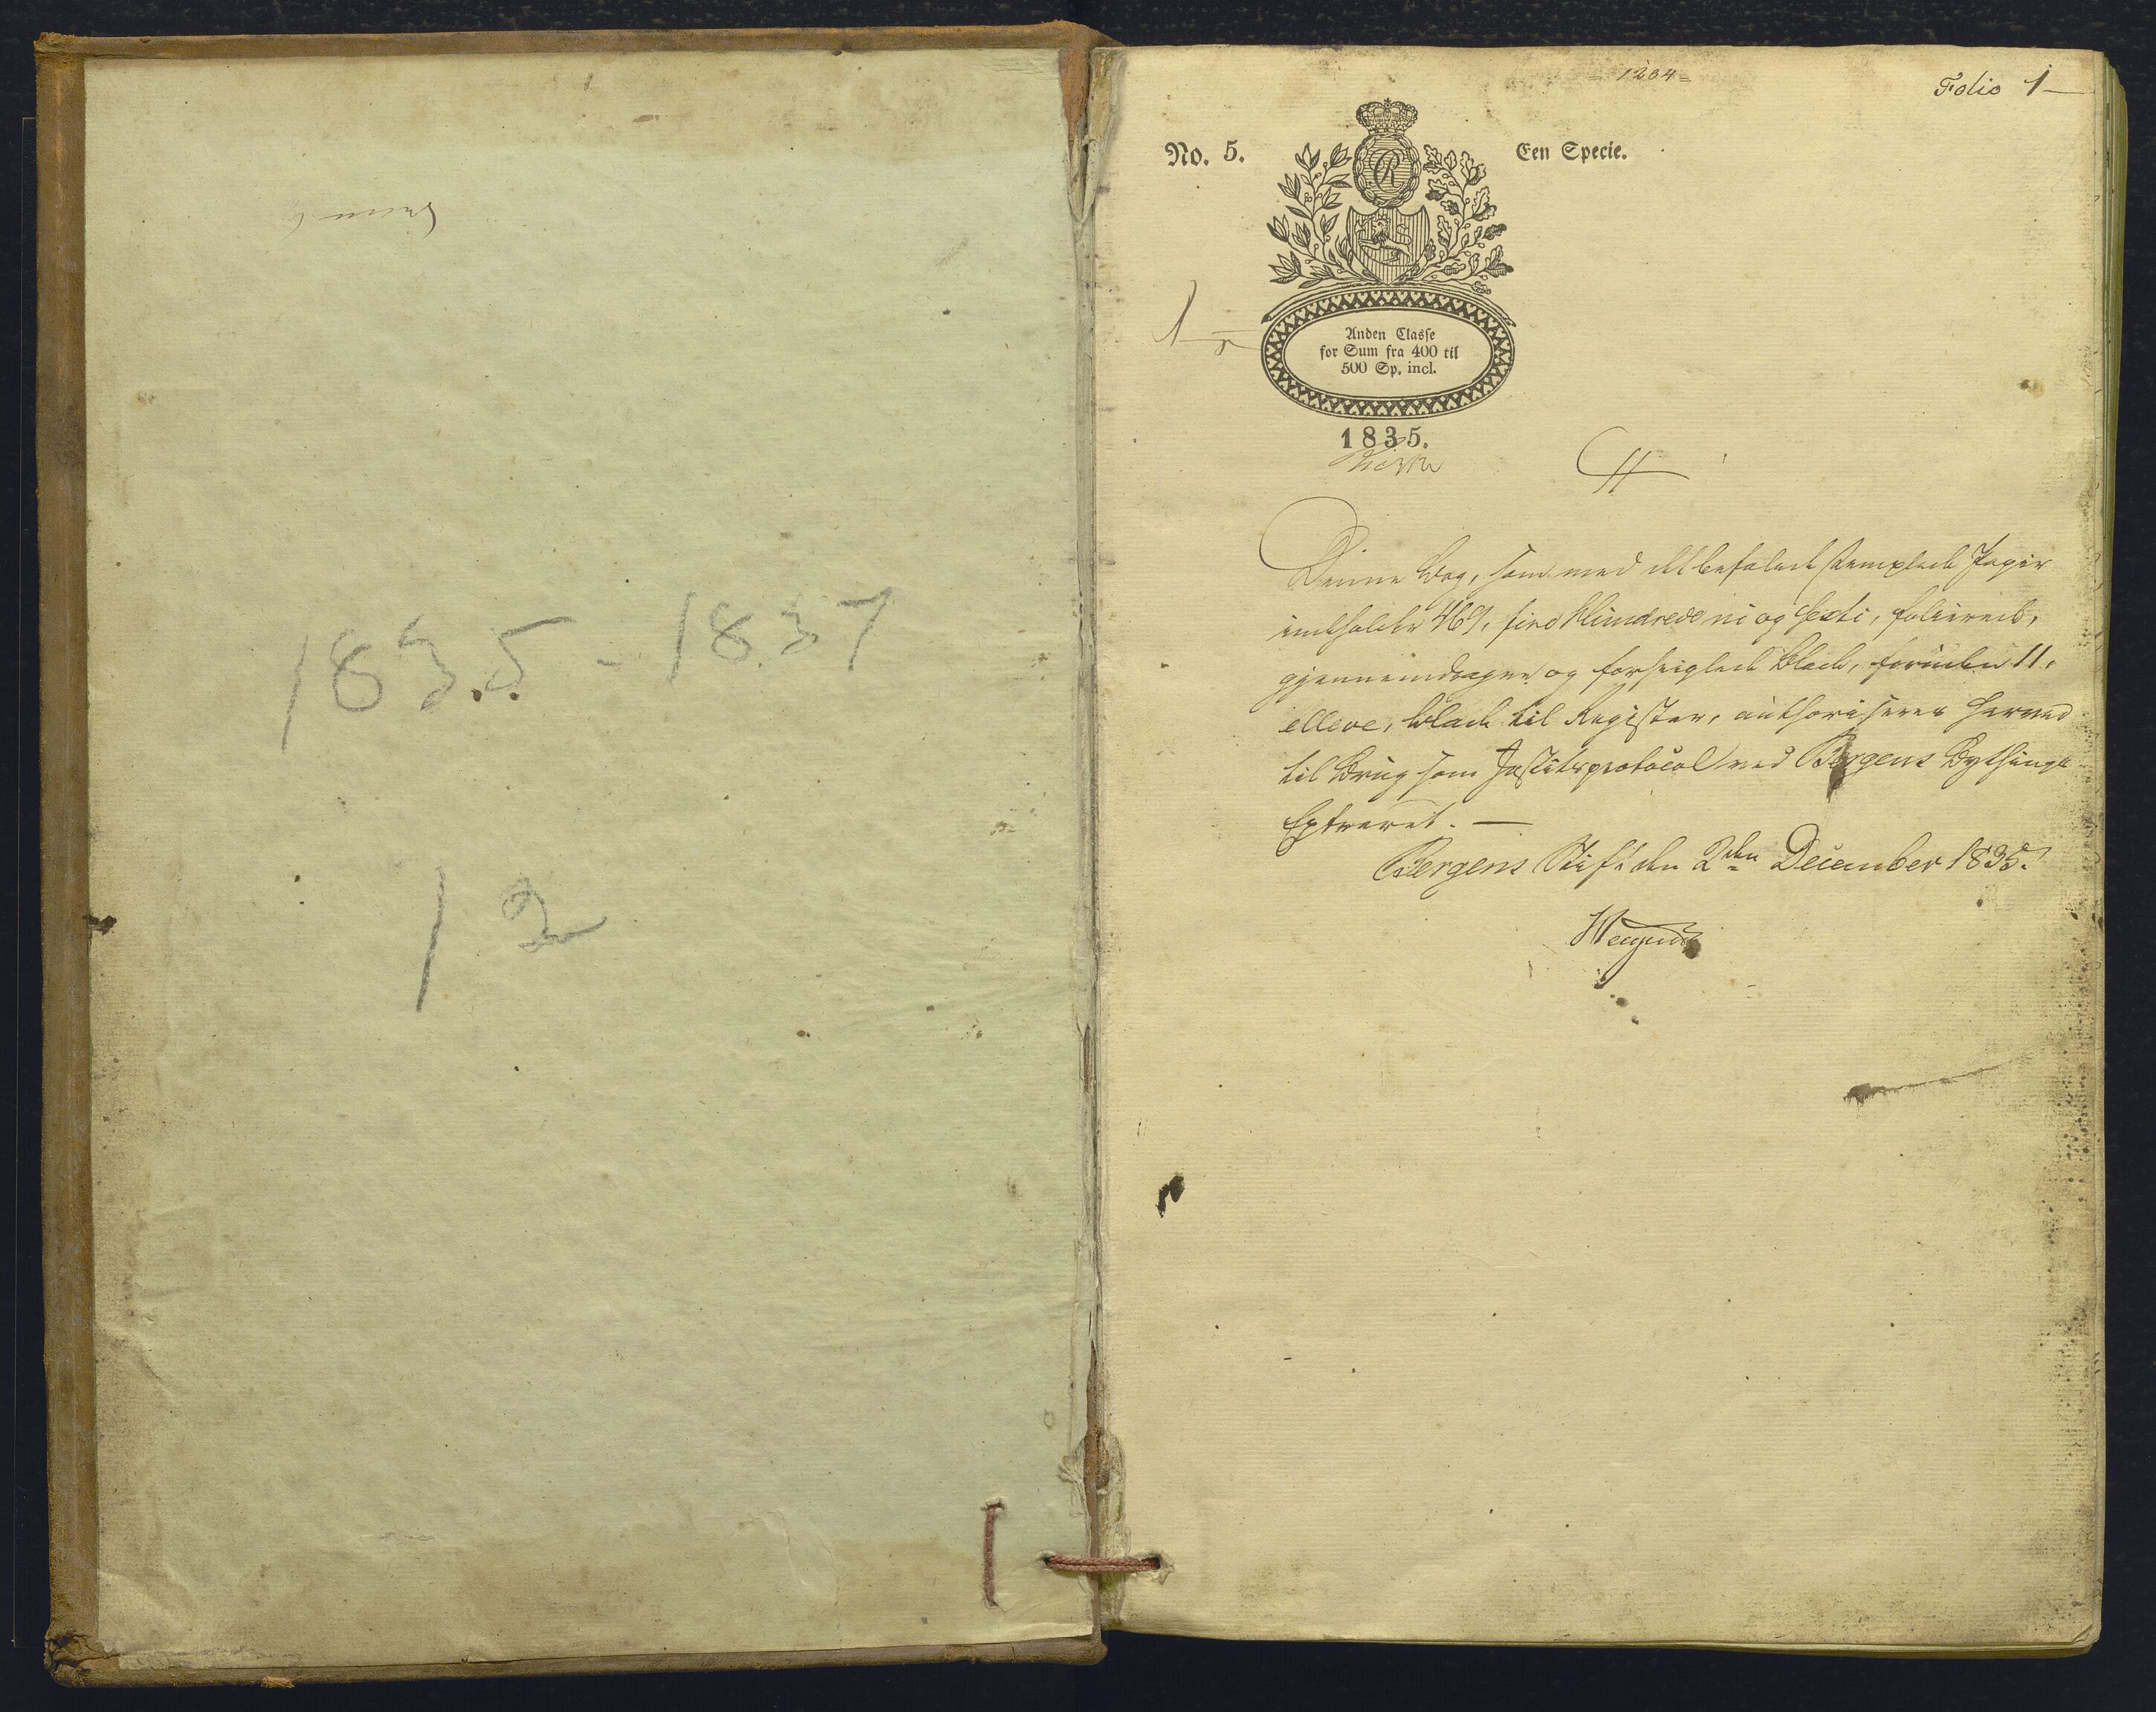 1835 - 1837
12
= 1204 =
Folio 1
No. 5.
Een Specie.
R
Anden Classe
for Sum fra 400 til
500 Sp. incl.
1835.
Denne Bog, som med det befalede stemplede Papir
indholder 469, fire Hundrede ni og sexti, folierede,
gjennemdragne og forseiglede Blade, foruden 11,
elleve, Blade til Register, authoriseres herved
til Brug som Justitsprotocol ved Bergens Bythings
Extraret. —
Bergens Stift den 2den December 1835.